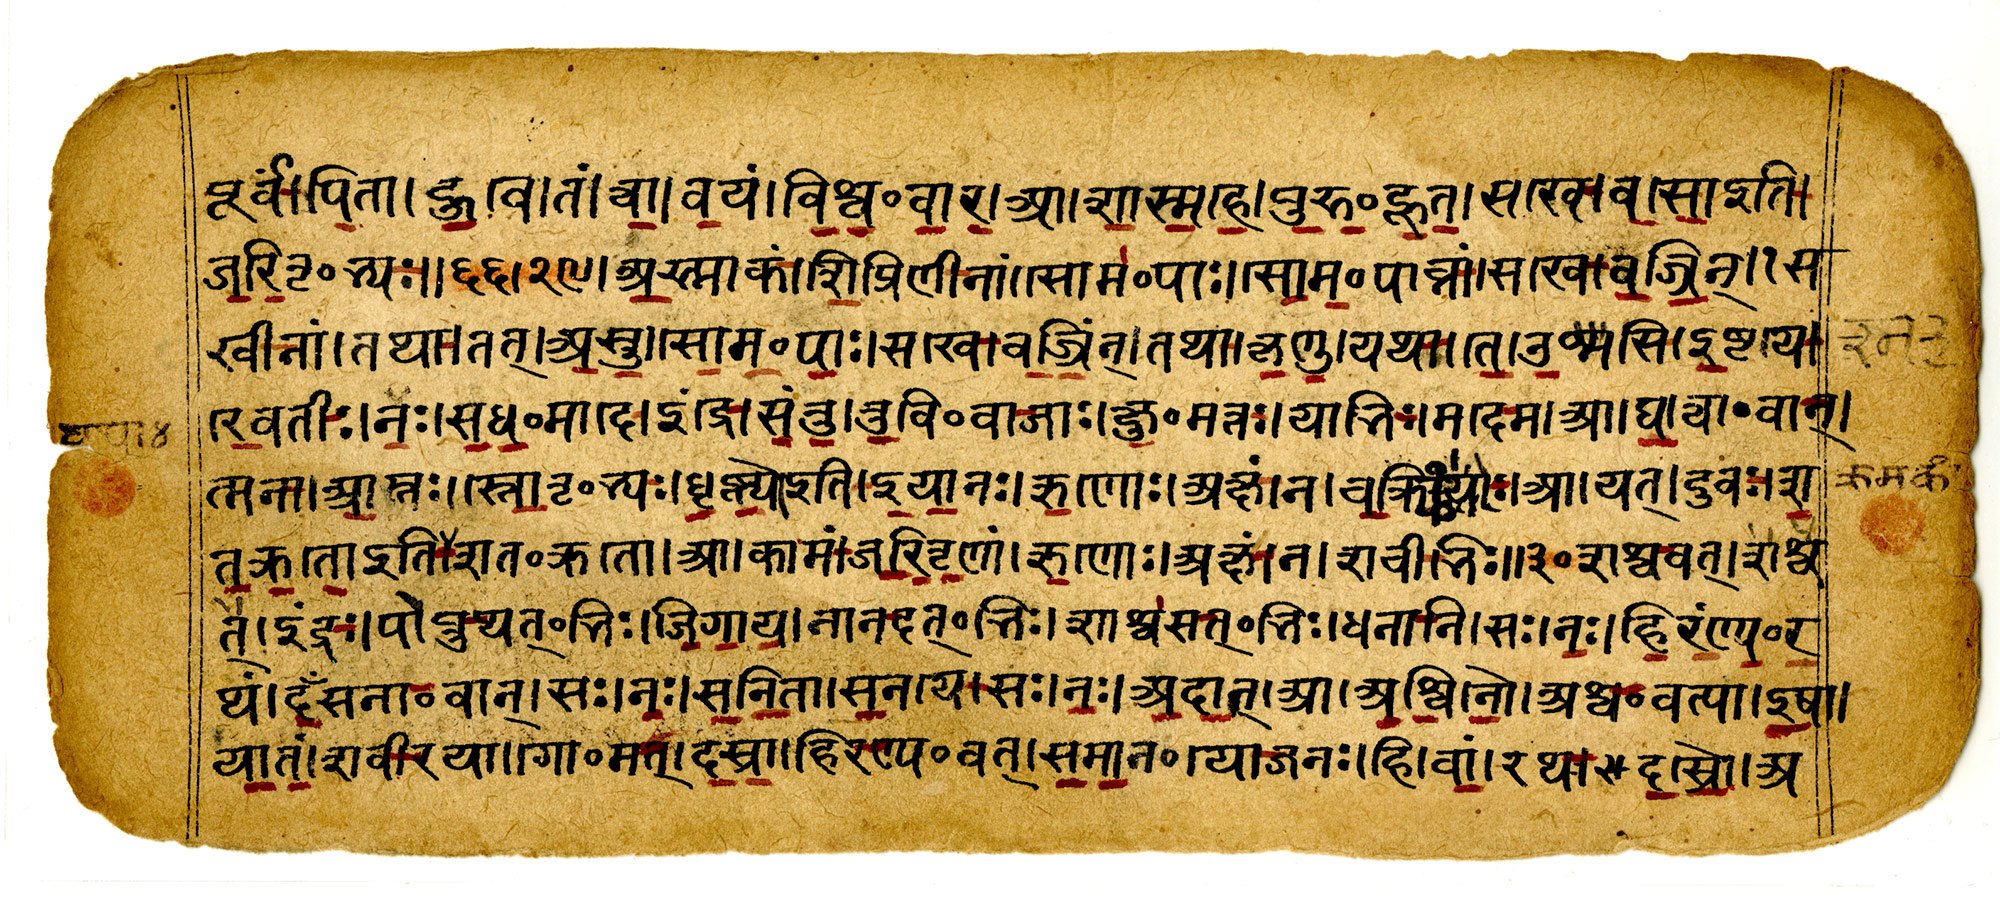 पूर्वं।पिता।हुवे।तं।त्वा।वयं।विश्व॰वार।आ।शास्महे।पुरु॰हूत।सखे।वसो इति।
जरितृ॰भ्यः॥६६।२९।अस्माकं।शिप्रिणीनां।सोम॰पाः।सोम॰पाव्नां।सखे।वज्रिन्।स
खीनां।तथा।तत्।अस्तु।सोम॰पाः।सखे।वज्रिन्।तथा।कृणु।यथा।ते।उश्मसि।इष्टये।
रेवतीः।नः।सध॰मादे।इंद्रे।संतु।तुवि॰वाजाः।क्षु॰मन्तः।याभिः।मदेम।आ।घ।त्वा॰वान्।
त्मना।आप्तः।स्तोतृ॰भ्यः।धृष्णो इति।इयानः।ऋणोः।अक्षं।न।चक्र्योः।आ।यत्।दुवः।श
तक्रतो इति शत॰क्रतो।आ।कामं।जरितॄणां।ऋणोः।अक्षं।न।शचीभिः॥३०शश्वत्।
इंद्रः।पोप्रुथत्॰भिः।जिगाय।नानदत्॰भिः।शाश्वसत्॰भिः।धनानि।सः।नः।हिरण्य॰र
थं।दँसना॰वान्।सः।नः।सनिता।सनये।सः।नः।अदात्।आ।अश्विनौ।अश्व॰वत्या।इषा।
यातं।शवीरया।गो॰मत्।दस्रा।हिरण्य॰वत्।समान॰योजनः।हि।वां।रथः।दस्रौ।अ